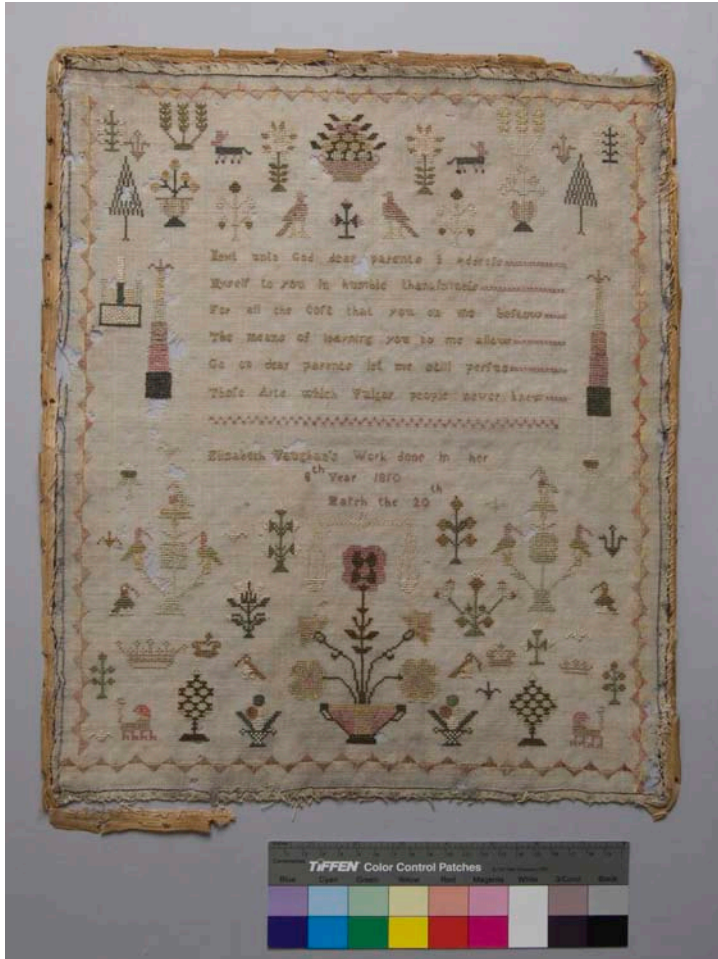 Next unto God dear parents I address
Myself to you in humble thankfulness
For all the Cost that you on me bestow
The means of learning you to me allow
Go on dear parents let me still persue
Those Arts which Vulgar people never knew
Elizabeth Vaughan's Work done in her
th Year 1810
March the 20th
TIFFEN Color Control Patches
Blue Cyan Green Yellow Red Magenta White 3/Color Black